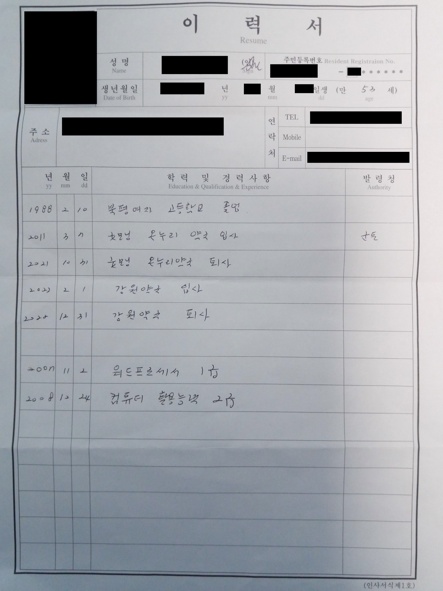 이 력 서
Resume
성 명
Name
주민등록번호 Resident Registration No.
생년월일
Date of Birth
년 월 일생 (만 세)
yy mm dd age
주 소
Adress
연 락 처
TEL
Mobile
E-mail
년 월 일
yy mm dd
학 력 및 경 력 사 항
Education & Qualification & Experience
발 령 청
Authority
1988 2 10 북평여자 고등학교 졸업
2011 3 온누리 약국 입사
2021 10 31 온누리약국 퇴사
2022 2 1 강원약국 입사
12 31 강원약국 퇴사
11 2 워드프로세서 1급
2008 12 24 컴퓨터 활용능력 2급
(인사서식제1호)